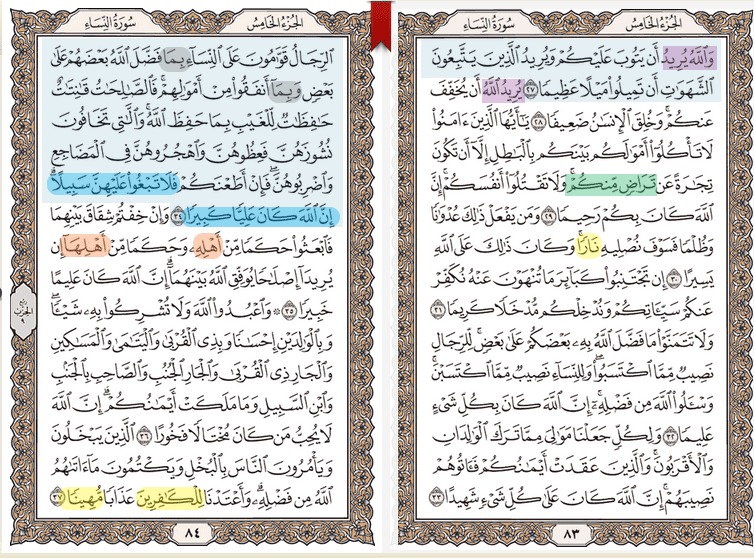 الجُزْءُ الخَامِسُ سُورَةُ النِّسَاءِ
وَٱللَّهُ يُرِيدُ أَن يَتُوبَ عَلَيْكُمْ وَيُرِيدُ ٱلَّذِينَ يَتَّبِعُونَ
ٱلشَّهَوَٰتِ أَن تَمِيلُوا۟ مَيْلًا عَظِيمًا ٢٧ يُرِيدُ ٱللَّهُ أَن يُخَفِّفَ
عَنكُمْ ۚ وَخُلِقَ ٱلْإِنسَٰنُ ضَعِيفًا ٢٨ يَٰٓأَيُّهَا ٱلَّذِينَ ءَامَنُوا۟
لَا تَأْكُلُوٓا۟ أَمْوَٰلَكُم بَيْنَكُم بِٱلْبَٰطِلِ إِلَّآ أَن تَكُونَ
تِجَٰرَةً عَن تَرَاضٍ مِّنكُمْ ۚ وَلَا تَقْتُلُوٓا۟ أَنفُسَكُمْ ۚ إِنَّ
ٱللَّهَ كَانَ بِكُمْ رَحِيمًا ٢٩ وَمَن يَفْعَلْ ذَٰلِكَ عُدْوَٰنًا
وَظُلْمًا فَسَوْفَ نُصْلِيهِ نَارًا ۚ وَكَانَ ذَٰلِكَ عَلَى ٱللَّهِ
يَسِيرًا ٣٠ إِن تَجْتَنِبُوا۟ كَبَآئِرَ مَا تُنْهَوْنَ عَنْهُ نُكَفِّرْ
عَنكُمْ سَيِّـَٔاتِكُمْ وَنُدْخِلْكُم مُّدْخَلًا كَرِيمًا ٣١
وَلَا تَتَمَنَّوْا۟ مَا فَضَّلَ ٱللَّهُ بِهِۦ بَعْضَكُمْ عَلَىٰ بَعْضٍ ۚ لِّلرِّجَالِ
نَصِيبٌ مِّمَّا ٱكْتَسَبُوا۟ ۖ وَلِلنِّسَآءِ نَصِيبٌ مِّمَّا ٱكْتَسَبْنَ ۚ
وَسْـَٔلُوا۟ ٱللَّهَ مِن فَضْلِهِۦٓ ۗ إِنَّ ٱللَّهَ كَانَ بِكُلِّ شَىْءٍ
عَلِيمًا ٣٢ وَلِكُلٍّ جَعَلْنَا مَوَٰلِىَ مِمَّا تَرَكَ ٱلْوَٰلِدَانِ
وَٱلْأَقْرَبُونَ ۚ وَٱلَّذِينَ عَقَدَتْ أَيْمَٰنُكُمْ فَـَٔاتُوهُمْ
نَصِيبَهُمْ ۚ إِنَّ ٱللَّهَ كَانَ عَلَىٰ كُلِّ شَىْءٍ شَهِيدًا ٣٣
٨٣
الجُزْءُ الخَامِسُ سُورَةُ النِّسَاءِ
ٱلرِّجَالُ قَوَّٰمُونَ عَلَى ٱلنِّسَآءِ بِمَا فَضَّلَ ٱللَّهُ بَعْضَهُمْ عَلَىٰ
بَعْضٍ وَبِمَآ أَنفَقُوا۟ مِنْ أَمْوَٰلِهِمْ ۚ فَٱلصَّٰلِحَٰتُ قَٰنِتَٰتٌ
حَٰفِظَٰتٌ لِّلْغَيْبِ بِمَا حَفِظَ ٱللَّهُ ۚ وَٱلَّٰتِى تَخَافُونَ
نُشُوزَهُنَّ فَعِظُوهُنَّ وَٱهْجُرُوهُنَّ فِى ٱلْمَضَاجِعِ
وَٱضْرِبُوهُنَّ ۖ فَإِنْ أَطَعْنَكُمْ فَلَا تَبْغُوا۟ عَلَيْهِنَّ سَبِيلًا ۗ
إِنَّ ٱللَّهَ كَانَ عَلِيًّا كَبِيرًا ٣٤ وَإِنْ خِفْتُمْ شِقَاقَ بَيْنِهِمَا
فَٱبْعَثُوا۟ حَكَمًا مِّنْ أَهْلِهِۦ وَحَكَمًا مِّنْ أَهْلِهَآ إِن
يُرِيدَآ إِصْلَٰحًا يُوَفِّقِ ٱللَّهُ بَيْنَهُمَآ ۗ إِنَّ ٱللَّهَ كَانَ عَلِيمًا
خَبِيرًا ٣٥ ۞ وَٱعْبُدُوا۟ ٱللَّهَ وَلَا تُشْرِكُوا۟ بِهِۦ شَيْـًٔا ۖ
وَبِٱلْوَٰلِدَيْنِ إِحْسَٰنًا وَبِذِى ٱلْقُرْبَىٰ وَٱلْيَتَٰمَىٰ وَٱلْمَسَٰكِينِ
وَٱلْجَارِ ذِى ٱلْقُرْبَىٰ وَٱلْجَارِ ٱلْجُنُبِ وَٱلصَّاحِبِ بِٱلْجَنۢبِ
وَٱبْنِ ٱلسَّبِيلِ وَمَا مَلَكَتْ أَيْمَٰنُكُمْ ۗ إِنَّ ٱللَّهَ
لَا يُحِبُّ مَن كَانَ مُخْتَالًا فَخُورًا ٣٦ ٱلَّذِينَ يَبْخَلُونَ
وَيَأْمُرُونَ ٱلنَّاسَ بِٱلْبُخْلِ وَيَكْتُمُونَ مَآ ءَاتَىٰهُمُ
ٱللَّهُ مِن فَضْلِهِۦ ۗ وَأَعْتَدْنَا لِلْكَٰفِرِينَ عَذَابًا مُّهِينًا ٣٧
٨٤
ربع
الحزب
٩